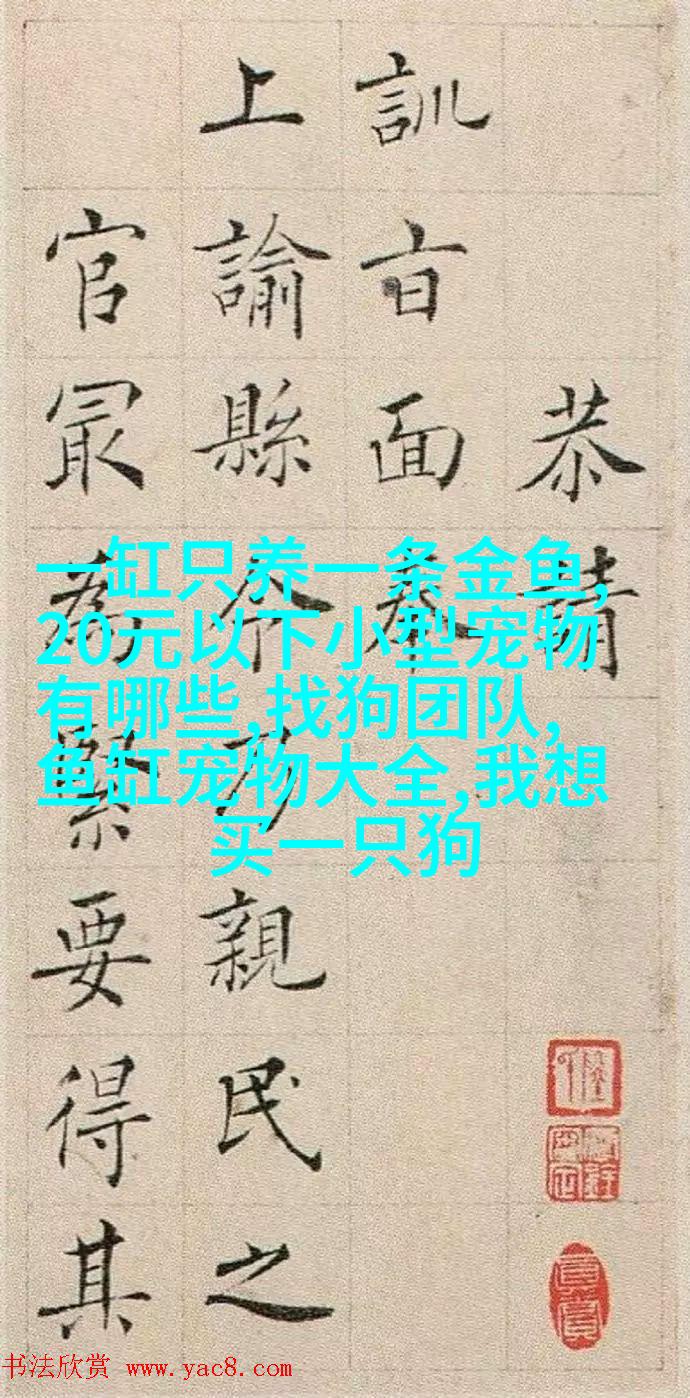 恭請
訓㫖面奉
上諭縣令乃親民之
官冣為緊要得其
一缸只养一条金鱼,
20元以下小型宠物
有哪些,找狗团队,
鱼缸宠物大全,我想
买一只狗
书法欣赏 www.yac8.com